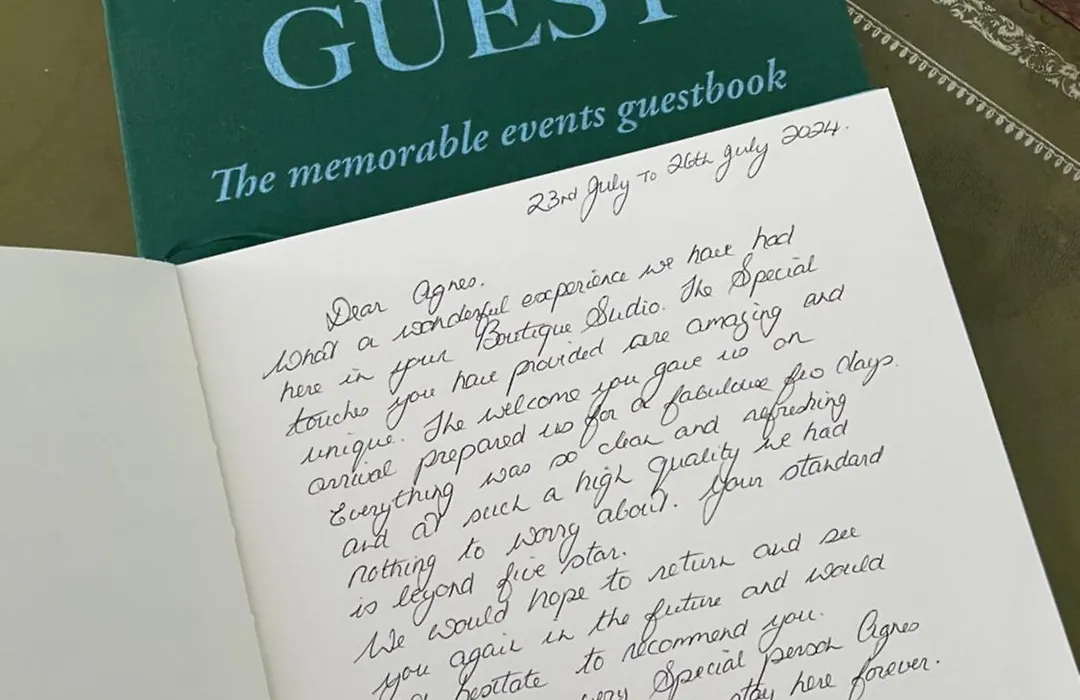 GUEST
The memorable events guestbook
23rd July To 26th July 2024.
Dear Agnes.
What a wonderful experience we have had
here in your Boutique Sudio. The Special
touches you have provided are amazing and
unique. The welcome you gave us on
arrival prepared us for a fabulous few days.
Everything was so clean and refreshing
and at such a high quality we had
nothing to worry about. Your standard
is beyond five star.
We would hope to return and see
you again in the future and would
hesitate to recommend you.
very Special person Agnes
stay here forever.